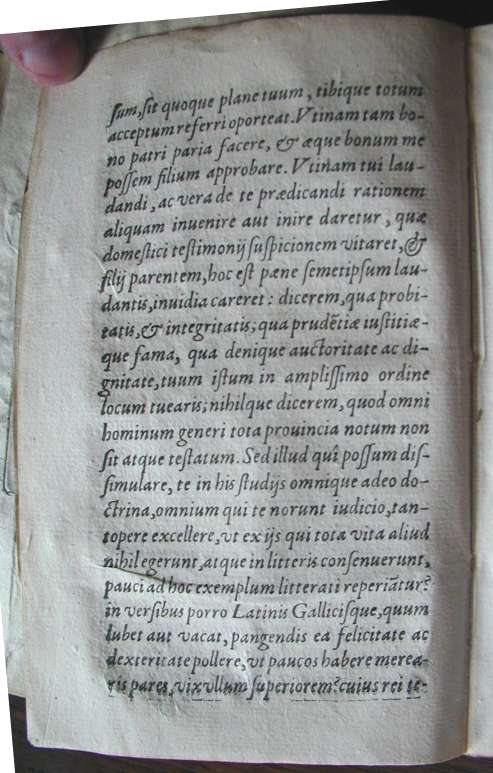 sum, sit quoque plane tuum, tibique totum
acceptum referri oporteat. Vtinam tam bo-
no patri paria facere, & æque bonum me
possem filium approbare. Vtinam tui lau-
dandi, ac vera de te prædicandi rationem
aliquam inuenire aut inire daretur, quæ
domestici testimonij suspicionem vitaret, &
filij parentem, hoc est pæne semetipsum lau-
dantis, inuidia careret: dicerem, qua probi-
tatis, & integritatis; qua prudẽtiæ iustitiæ-
que fama, qua denique auctoritate ac di-
gnitate, tuum istum in amplissimo ordine
locum tuearis; nihilque dicerem, quod omni
hominum generi tota prouincia notum non
sit atque testatum. Sed illud quî possum dis-
simulare, te in his studijs omnique adeo do-
ctrina, omnium qui te norunt iudicio, tan-
topere excellere, vt ex ijs qui tota vita aliud
nihil egerunt, atque in litteris consenuerunt,
pauci ad hoc exemplum litterati reperiãtur?
in versibus porro Latinis Gallicisque, quum
lubet aut vacat, pangendis ea felicitate ac
dexteritate pollere, vt paucos habere merea-
ris pares, vix vllum superiorem? cuius rei te-